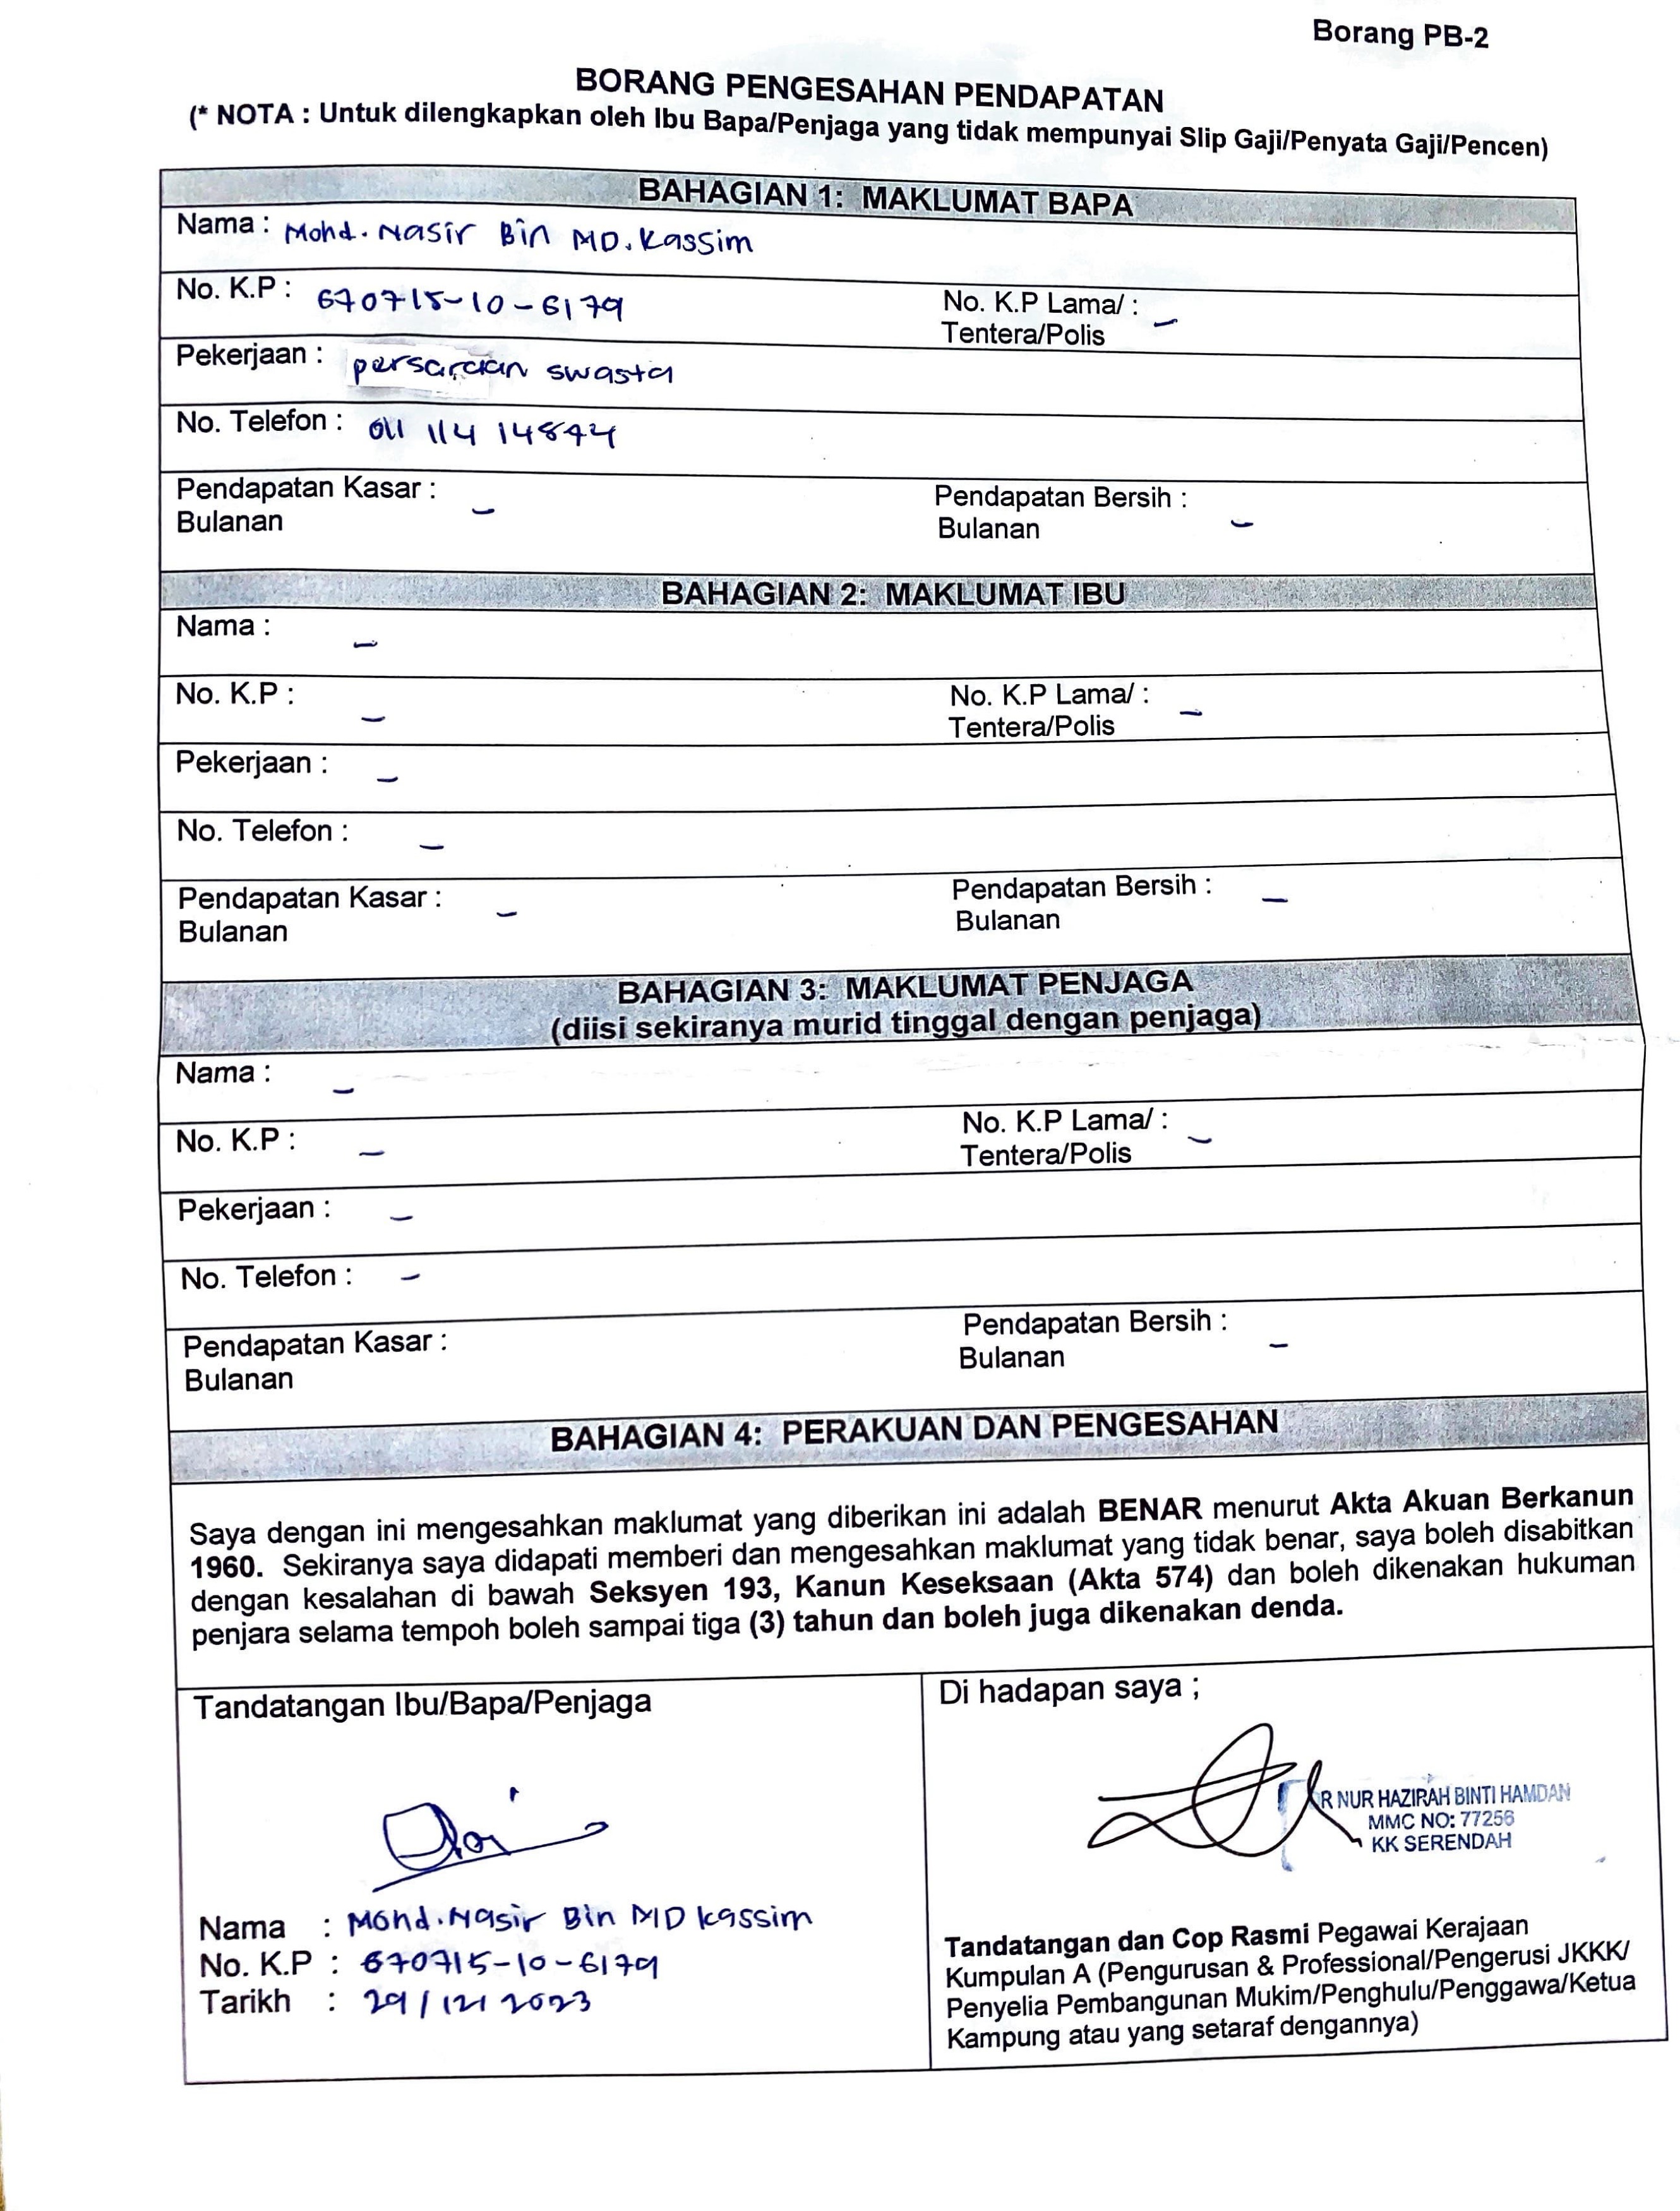 Borang PB-2
BORANG PENGESAHAN PENDAPATAN
(* NOTA : Untuk dilengkapkan oleh Ibu Bapa/Penjaga yang tidak mempunyai Slip Gaji/Penyata Gaji/Pencen)
BAHAGIAN 1: MAKLUMAT BAPA
Nama : Mohd. Nasir Bin MD. Kassim
No. K.P : 670715-10-6179 No. K.P Lama/ : -
Tentera/Polis
Pekerjaan : persaraan swasta
No. Telefon : 011 114 14844
Pendapatan Kasar : - Pendapatan Bersih : -
Bulanan Bulanan
BAHAGIAN 2: MAKLUMAT IBU
Nama : -
No. K.P : - No. K.P Lama/ : -
Tentera/Polis
Pekerjaan : -
No. Telefon : -
Pendapatan Kasar : - Pendapatan Bersih : -
Bulanan Bulanan
BAHAGIAN 3: MAKLUMAT PENJAGA
(diisi sekiranya murid tinggal dengan penjaga)
Nama : -
No. K.P : - No. K.P Lama/ : -
Tentera/Polis
Pekerjaan : -
No. Telefon : -
Pendapatan Kasar : Pendapatan Bersih : -
Bulanan Bulanan
BAHAGIAN 4: PERAKUAN DAN PENGESAHAN
Saya dengan ini mengesahkan maklumat yang diberikan ini adalah BENAR menurut Akta Akuan Berkanun
1960. Sekiranya saya didapati memberi dan mengesahkan maklumat yang tidak benar, saya boleh disabitkan
dengan kesalahan di bawah Seksyen 193, Kanun Keseksaan (Akta 574) dan boleh dikenakan hukuman
penjara selama tempoh boleh sampai tiga (3) tahun dan boleh juga dikenakan denda.
Tandatangan Ibu/Bapa/Penjaga
Nama : Mohd. Nasir Bin MD Kassim
No. K.P : 670715-10-6179
Tarikh : 29/12/2023
Di hadapan saya ;
R NUR HAZIRAH BINTI HAMDAN
MMC NO: 77256
KK SERENDAH
Tandatangan dan Cop Rasmi Pegawai Kerajaan
Kumpulan A (Pengurusan & Professional/Pengerusi JKKK/
Penyelia Pembangunan Mukim/Penghulu/Penggawa/Ketua
Kampung atau yang setaraf dengannya)